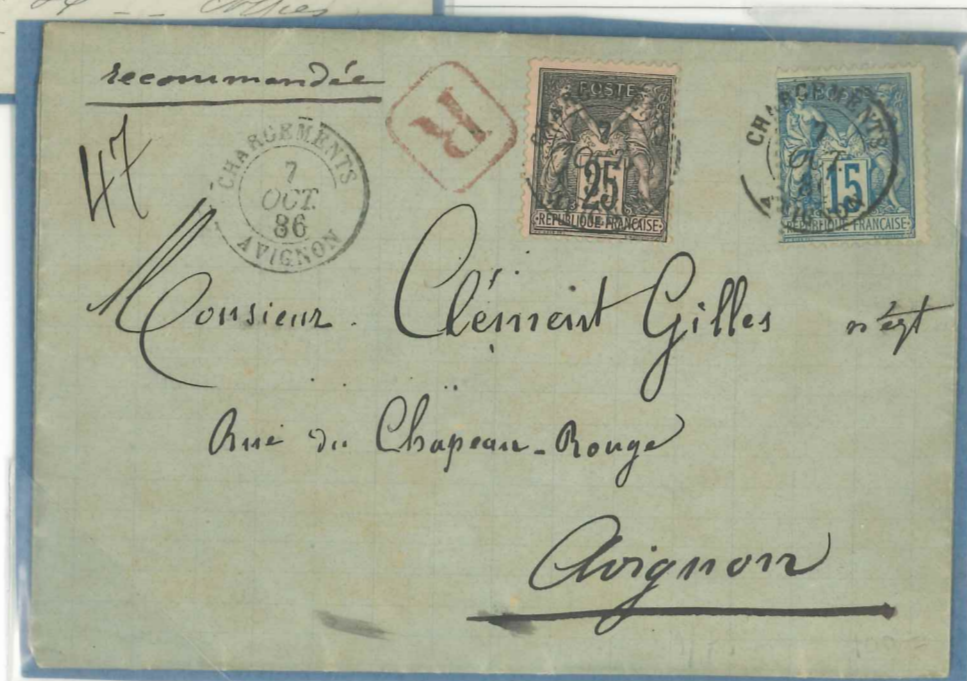 recommandée
47
R
CHARGEMENTS
7
OCT.
86
AVIGNON
POSTE
25
RÉPUBLIQUE FRANÇAISE
CHARGEMENTS
7
OCT
15
AVIGNON
RÉPUBLIQUE FRANÇAISE
Monsieur. Clément Gilles négt
Rue du Chapeau-Rouge
Avignon